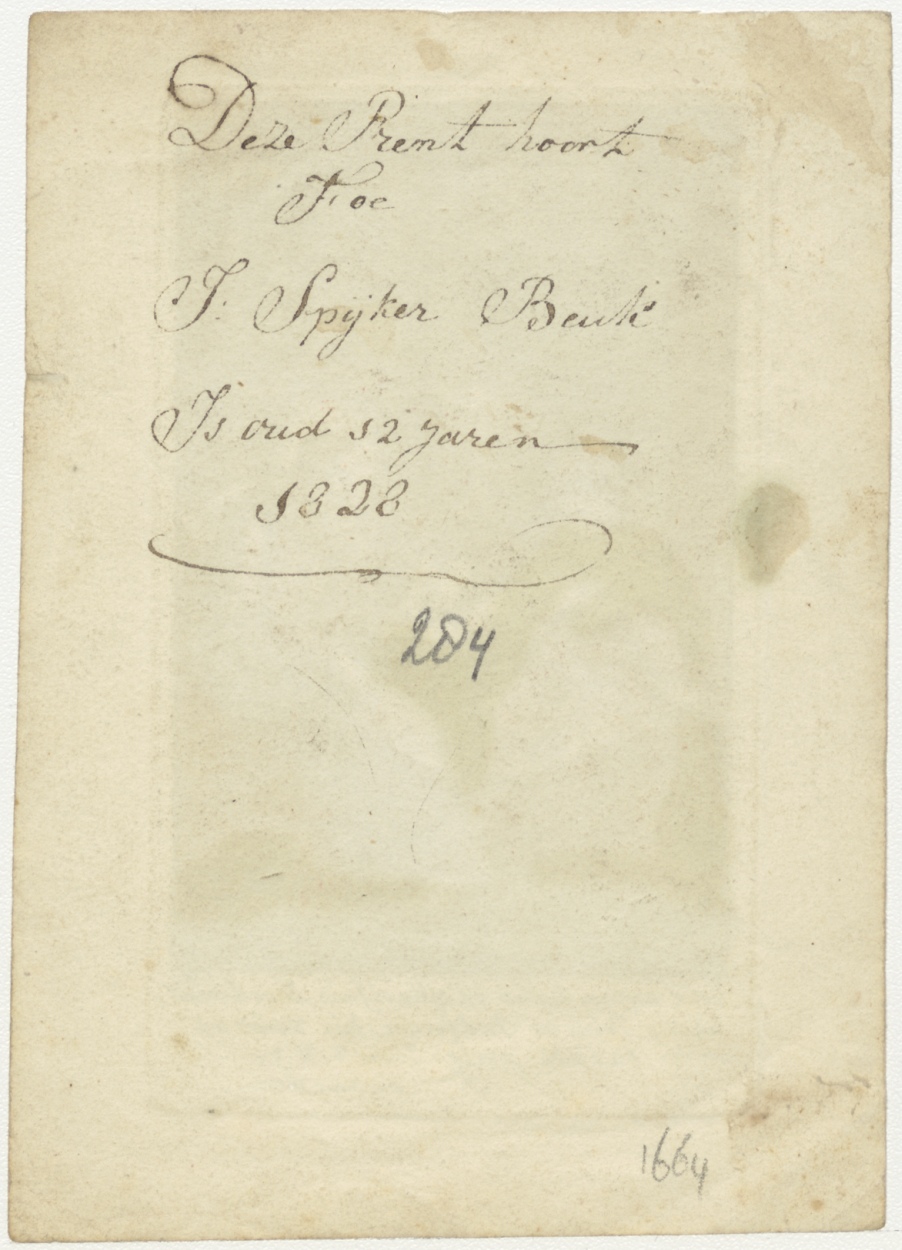 Deze Prent hoort
Toe
J: Spijker Beuk
Is oud 12 Jaren
1828
204
1664